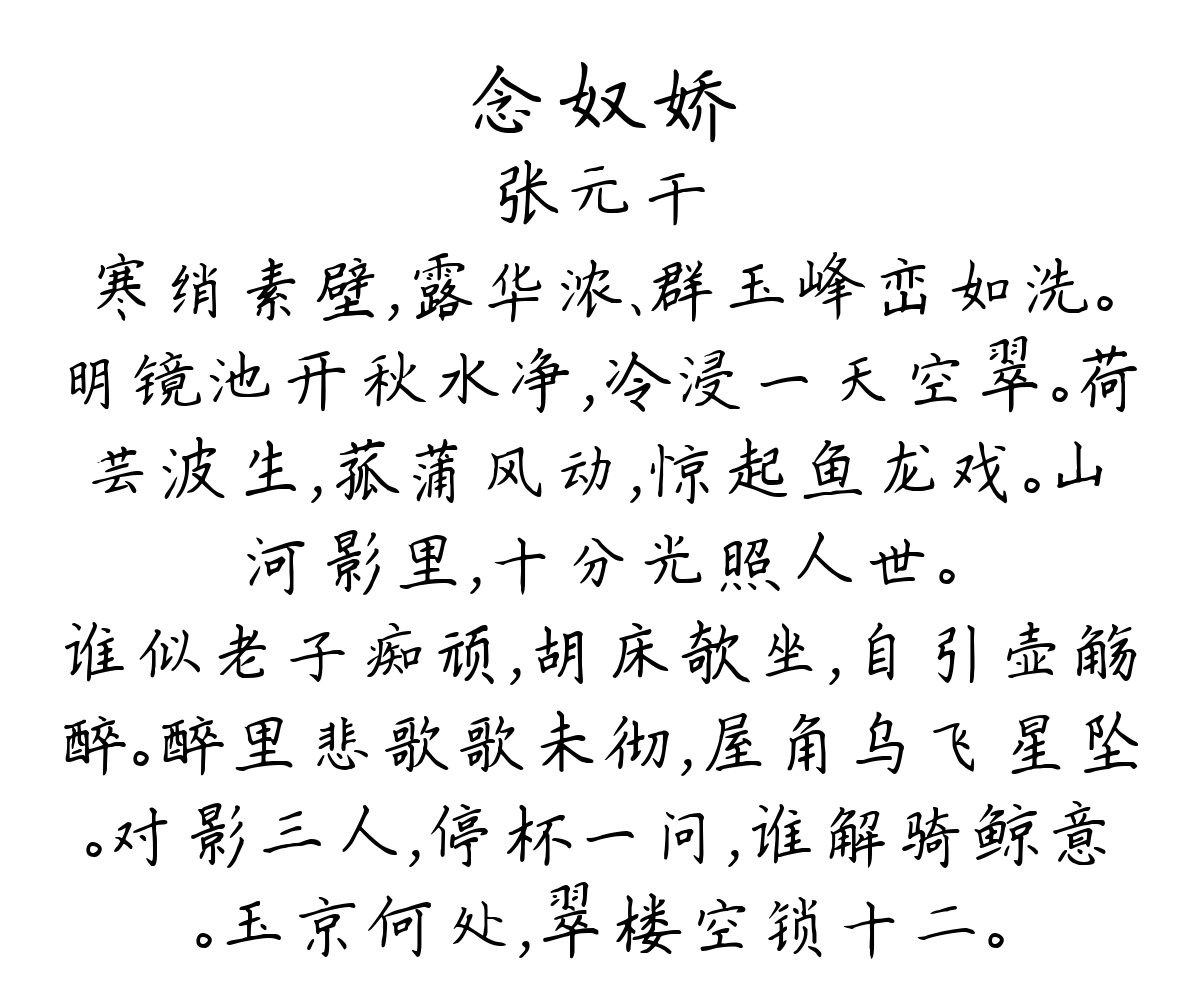 念奴娇
张元干
寒绡素壁,露华浓、群玉峰峦如洗。
明镜池开秋水净,冷浸一天空翠。荷
芸波生,菰蒲风动,惊起鱼龙戏。山
河影里,十分光照人世。
谁似老子痴顽,胡床欹坐,自引壶觞
醉。醉里悲歌歌未彻,屋角乌飞星坠
。对影三人,停杯一问,谁解骑鲸意
。玉京何处,翠楼空锁十二。